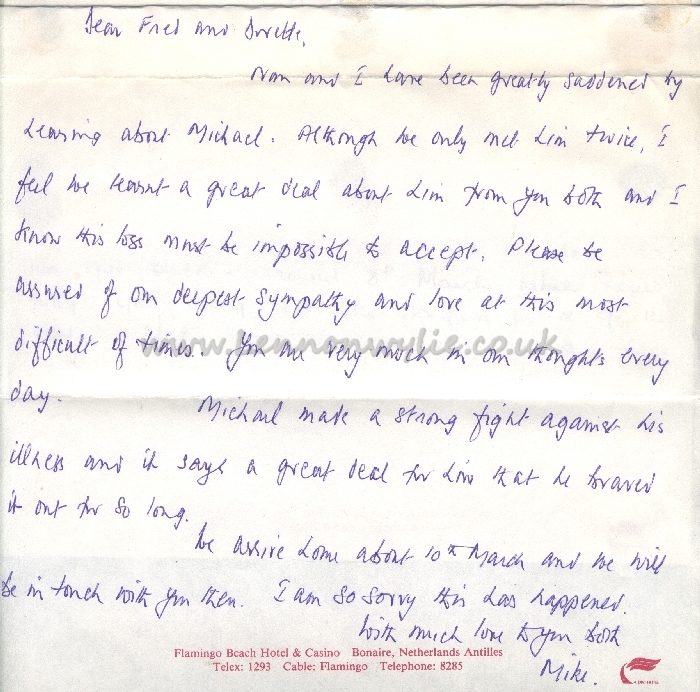 Dear Fred and Dorette,
Nan and I have been greatly saddened by
hearing about Michael. Although we only met him twice, I
feel we learnt a great deal about him from you both and I
know this loss must be impossible to accept. Please be
assured of our deepest sympathy and love at this most
difficult of times. You are very much in our thoughts every
day.
Michael made a strong fight against his
illness and it says a great deal for him that he braved
it out for so long.
We arrive home about 10th March and we will
be in touch with you then. I am so sorry this has happened.
With much love to you both
Mike.
Flamingo Beach Hotel & Casino Bonaire, Netherlands Antilles
Telex: 1293 Cable: Flamingo Telephone: 8285
www.kennonwylie.co.uk